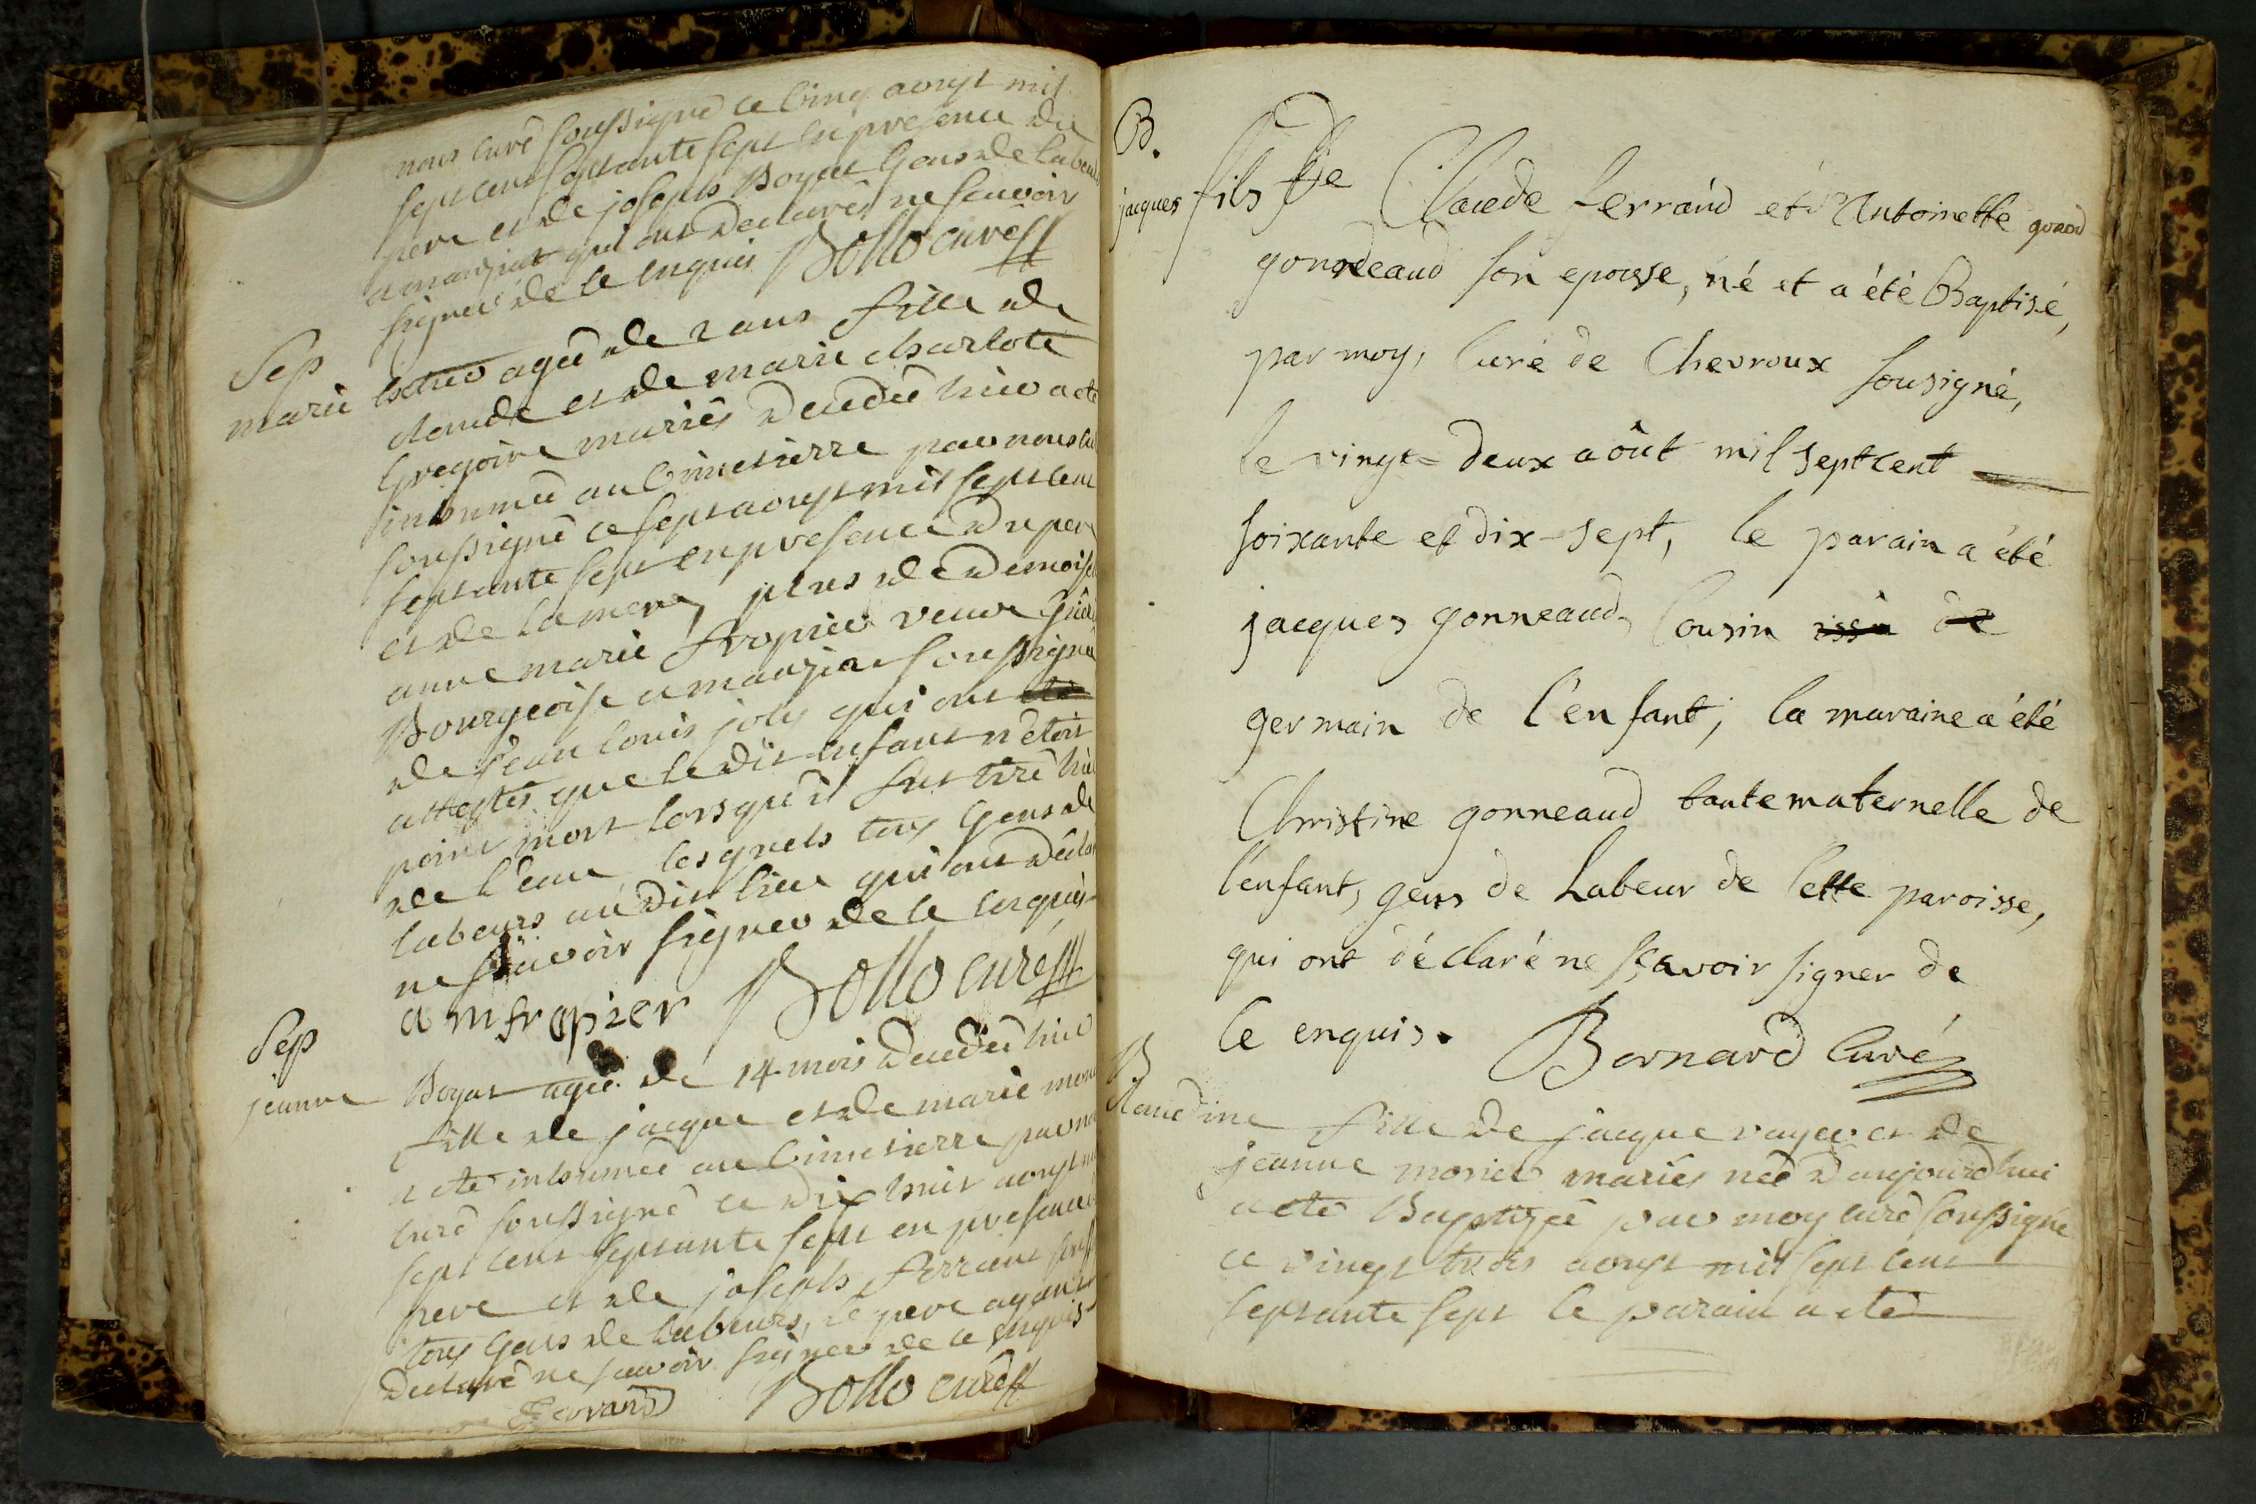 nous curé soussigné ce cinq aoust mil
sept cent septante sept en presence du
pere et de joseph Boyat gens de labeur
a manziat qui ont declarés ne scavoir
signer de ce enquis Bollo curé
Sep
marie agée de 2 ans fille de
claude et de marie charlote
Gregoire mariés decedée hier a eté
inhumée au Cimetierre par nous curé
soussigné ce sept aoust mil sept cent
septante sept en presence du pere
et de la mere, plus de Demoiselle
anne marie fropier veuve
Bourgeoise a manziat soussignée
de jean louis joly qui ont
attestés que le dit enfant n'etoit
point mort lorsqu'il fut tiré hier
de l'eau lesquels tous gens de
labeurs au dit lieu qui ont declaré
ne scavoir signer de ce enquis
a m fropier Bollo curé
Sep
jeanne Boyat agée de 14 mois decedée hier
fille de jacque et de marie
a eté inhumée au Cimetierre par nous
curé soussigné ce dix huit aoust mil
sept cent septante sept en presence du
pere et de joseph ferrant
tous gens de labeurs, le pere ayant
declaré ne scavoir signer de ce enquis
Ferrand Bollo curé
B.
jacques fils De Claude ferrand et d'Antoinette
gonneaud son epouse, né et a été Baptisé,
par moy, Curé de Chevroux sousigné,
le vingt=deux aôut mil sept cent
soixante et dix-sept, le parain a été
jacques gonneaud, Cousin issu de
germain de l'enfant; la maraine a été
Christine gonneaud tante maternelle de
l'enfant, gens de Labeur de Cette paroisse,
qui ont déclaré ne sçavoir signer de
Ce enquis. Bernard Curé
B
Claudine fille de jacque et de
jeanne morier mariés née d'aujourd'hui
a eté Baptizée par moy curé soussigné
ce vingt trois aoust mil sept cent
septante sept le parain a eté